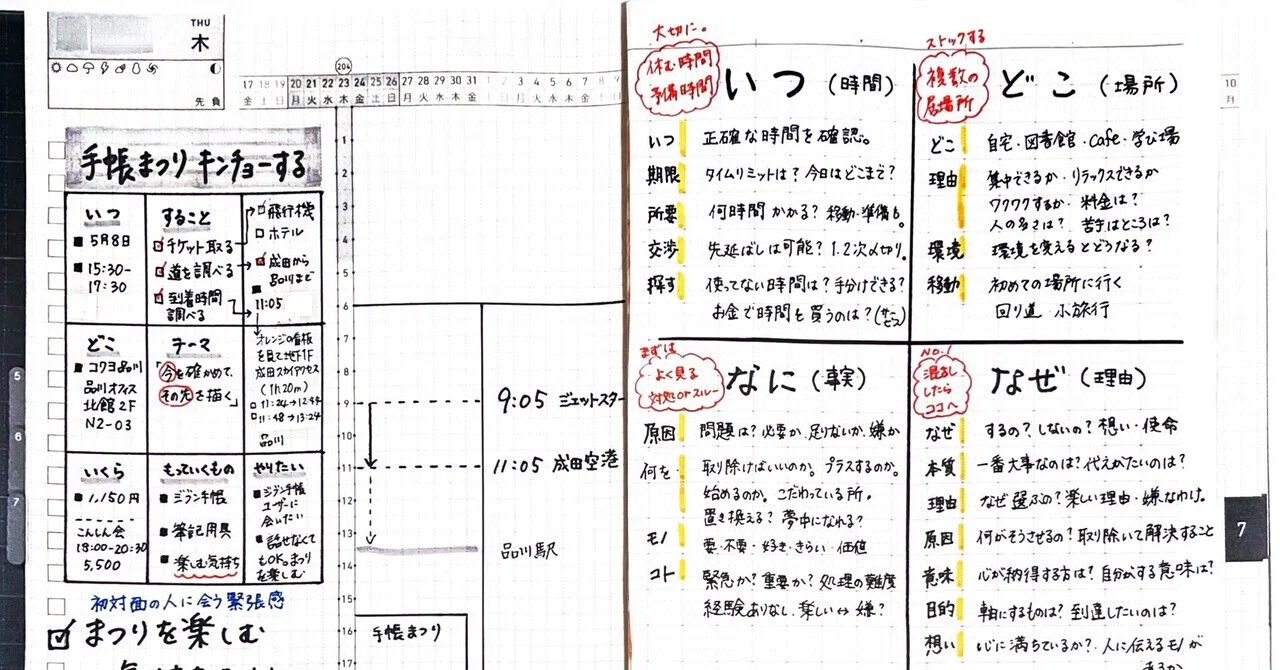 THU
木
先負
204
17 18 19 20 21 22 23 24 25 26 27 28 29 30 31 1 2 3 4 5 6 7 8 9
金 土 日 月 火 水 木 金 土 日 月 火 水 木 金
手帳まつり キンチョーする
いつ
5月8日
15:30-
17:30
すること
チケット取る
道を調べる
到着時間
調べる
飛行機
ホテル
成田から
品川まで
11:05
どこ
コクヨ品川
品川オフィス
北館2F
N2-03
テーマ
「今を確かめて、
その先を描く」
オレンジの看板
を見て地下1F
成田スカイアクセス
(1h20m)
11:24→12:44
11:48→13:24
品川
いくら
1,150円
こんしん会
18:00-20:30
5,500
もっていくもの
ジブン手帳
筆記用具
楽しむ気持ち
やりたい
ジブン手帳
ユーザーに
会いたい
話せなくて
もOK。まつり
を楽しむ
初対面の人に会う緊張感
まつりを楽しむ
1
2
3
4
5
6
7
8
9
10
11
12
13
14
15
16
17
9:05 ジェットスター
11:05 成田空港
品川駅
手帳まつり
5
6
7
大切に。
休む時間
予備時間
いつ (時間)
いつ 正確な時間を確認。
期限 タイムリミットは？今日はどこまで？
所要 何時間かかる？移動・準備も。
交渉 先延ばしは可能？1.2次〆切り。
探す 使ってない時間は？手分けできる？
お金で時間を買うのは？(サービス)
ストックする
複数の
居場所
どこ (場所)
どこ 自宅・図書館・cafe・学び場
理由 集中できるか・リラックスできるか
ワクワクするか 料金は？
人の多さは？ 苦手はところは？
環境 環境を変えるとどうなる？
移動 初めての場所に行く
回り道 小旅行
まずは
よく見る
対処orスルー
なに (事実)
原因 問題は？必要か、足りないか、嫌か
何を 取り除けばいいのか。プラスするのか。
始めるのか。こだわっている所。
置き換える？ 夢中になれる？
モノ 要・不要・好き・きらい・価値
コト 緊急か？重要か？処理の難度
経験ありなし。楽しい↔嫌？
NO.1
混乱
したら
ココへ
なぜ (理由)
なぜ するの？しないの？想い・使命
本質 一番大事なのは？代えがたいのは？
理由 なぜ選ぶの？楽しい理由・嫌なわけ。
原因 何がそうさせるの？取り除いて解決すること
意味 心が納得する方は？自分がする意味は？
目的 軸にするものは？到達したいのは？
想い 心に満ちているか？人に伝えるモノが
あるか
10
月
7